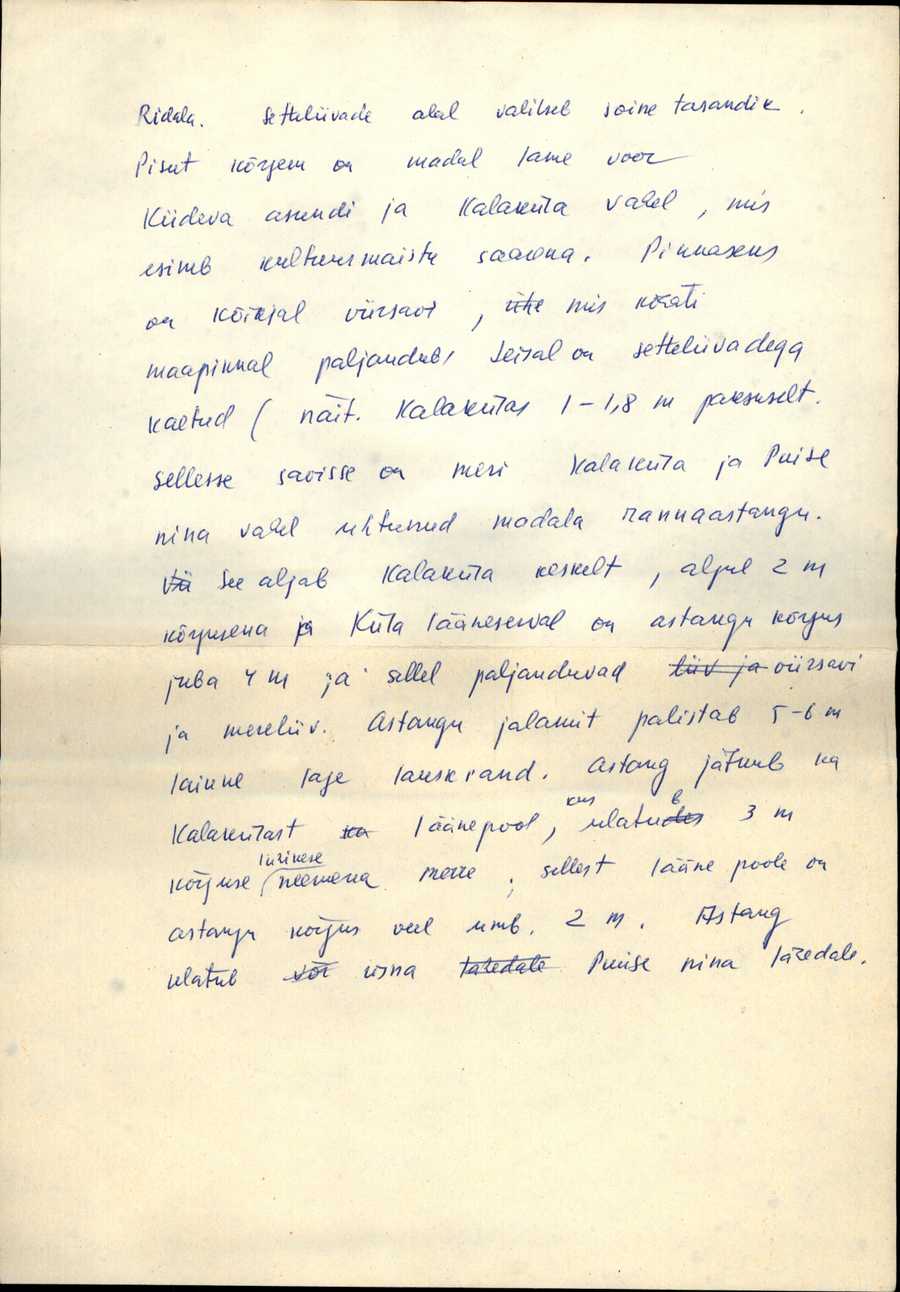 Ridala. Setteliivade alal valitseb soine tasandik.
Pisut kõrgem on madal lame voor
Kiideva asundi ja Kalaküla vahel, mis
esineb kultuurmaistu saarena. Pinnaseks
on kõikjal viirsavi, ühe mis kõrati
maapinnal paljandub, seisal on setteliivadega
kaetud (näit. Kalakülas 1-1,8 m paksuselt.
Sellesse savisse on meri Kalaküla ja Puise
nina vahel uhtunud madala rannaastangu.
Vii See algab Kalaküla keskelt, algul 2 m
kõrgusena ja Küla lääneserval on astangu kõrgus
juba 4 m ja sellel paljanduvad liiv ja viirsavi
ja mereliiv. Astangu jalamit palistab 5-6 m
laiune lage lauskrand. Astang jätkub ka
Kalakülast ka läänepool, kus ulatub 3 m
kõrguse luzikese neemena merre; sellest lääne poole on
astangu kõrgus veel umb. 2 m. Astang
ulatub võr üsna lähedale Puise nina lähedale.